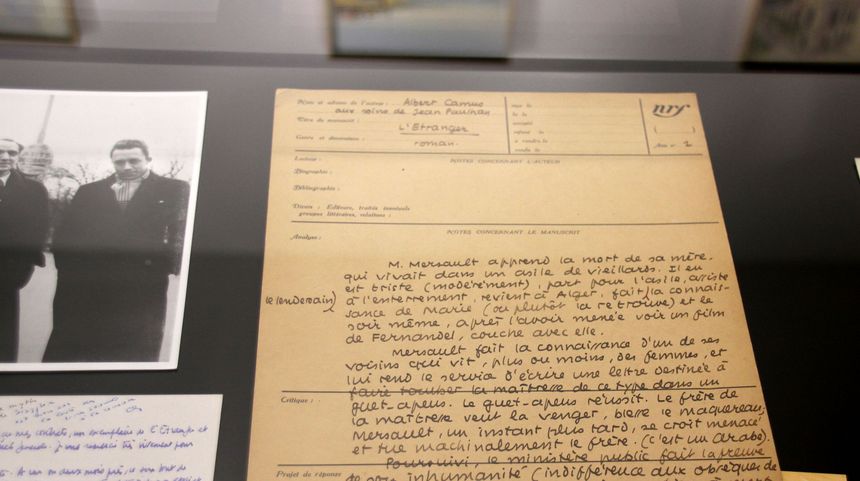 Nom et adresse de l'auteur : Albert Camus
aux soins de Jean Paulhan
Titre du manuscrit : L'Etranger
Genre et dimensions : roman.
reçu le
lu le
accepté
refusé le
à rendre le
rendu le
nrf
( )
Avis n° 2
Lecteur :
NOTES CONCERNANT L'AUTEUR
Biographie :
Bibliographie :
Divers : Editeurs, traités éventuels
groupes littéraires, relations :
NOTES CONCERNANT LE MANUSCRIT
Analyse :
M. Mersault apprend la mort de sa mère,
qui vivait dans un asile de vieillards. Il en
est triste (modérément), part pour l'asile, assiste
à l'enterrement, revient à Alger, fait (le lendemain) la connais-
sance de Marie (ou plutôt la retrouve) et le
soir même, après l'avoir menée voir un film
de Fernandel, couche avec elle.
Mersault fait la connaissance d'un de ses
voisins qui vit, plus ou moins, des femmes, et
lui rend le service d'écrire une lettre destinée à
faire tomber la maîtresse de ce type dans un
Critique :
guet-apens. Le guet-apens réussit. Le frère de
la maîtresse veut la venger, blesse le maquereau;
Mersault, un instant plus tard, se croit menacé
et tue machinalement le frère. (C'est un Arabe).
Poursuivi, le ministère public fait la preuve
Projet de réponse
de son inhumanité (indifférence aux obsèques de